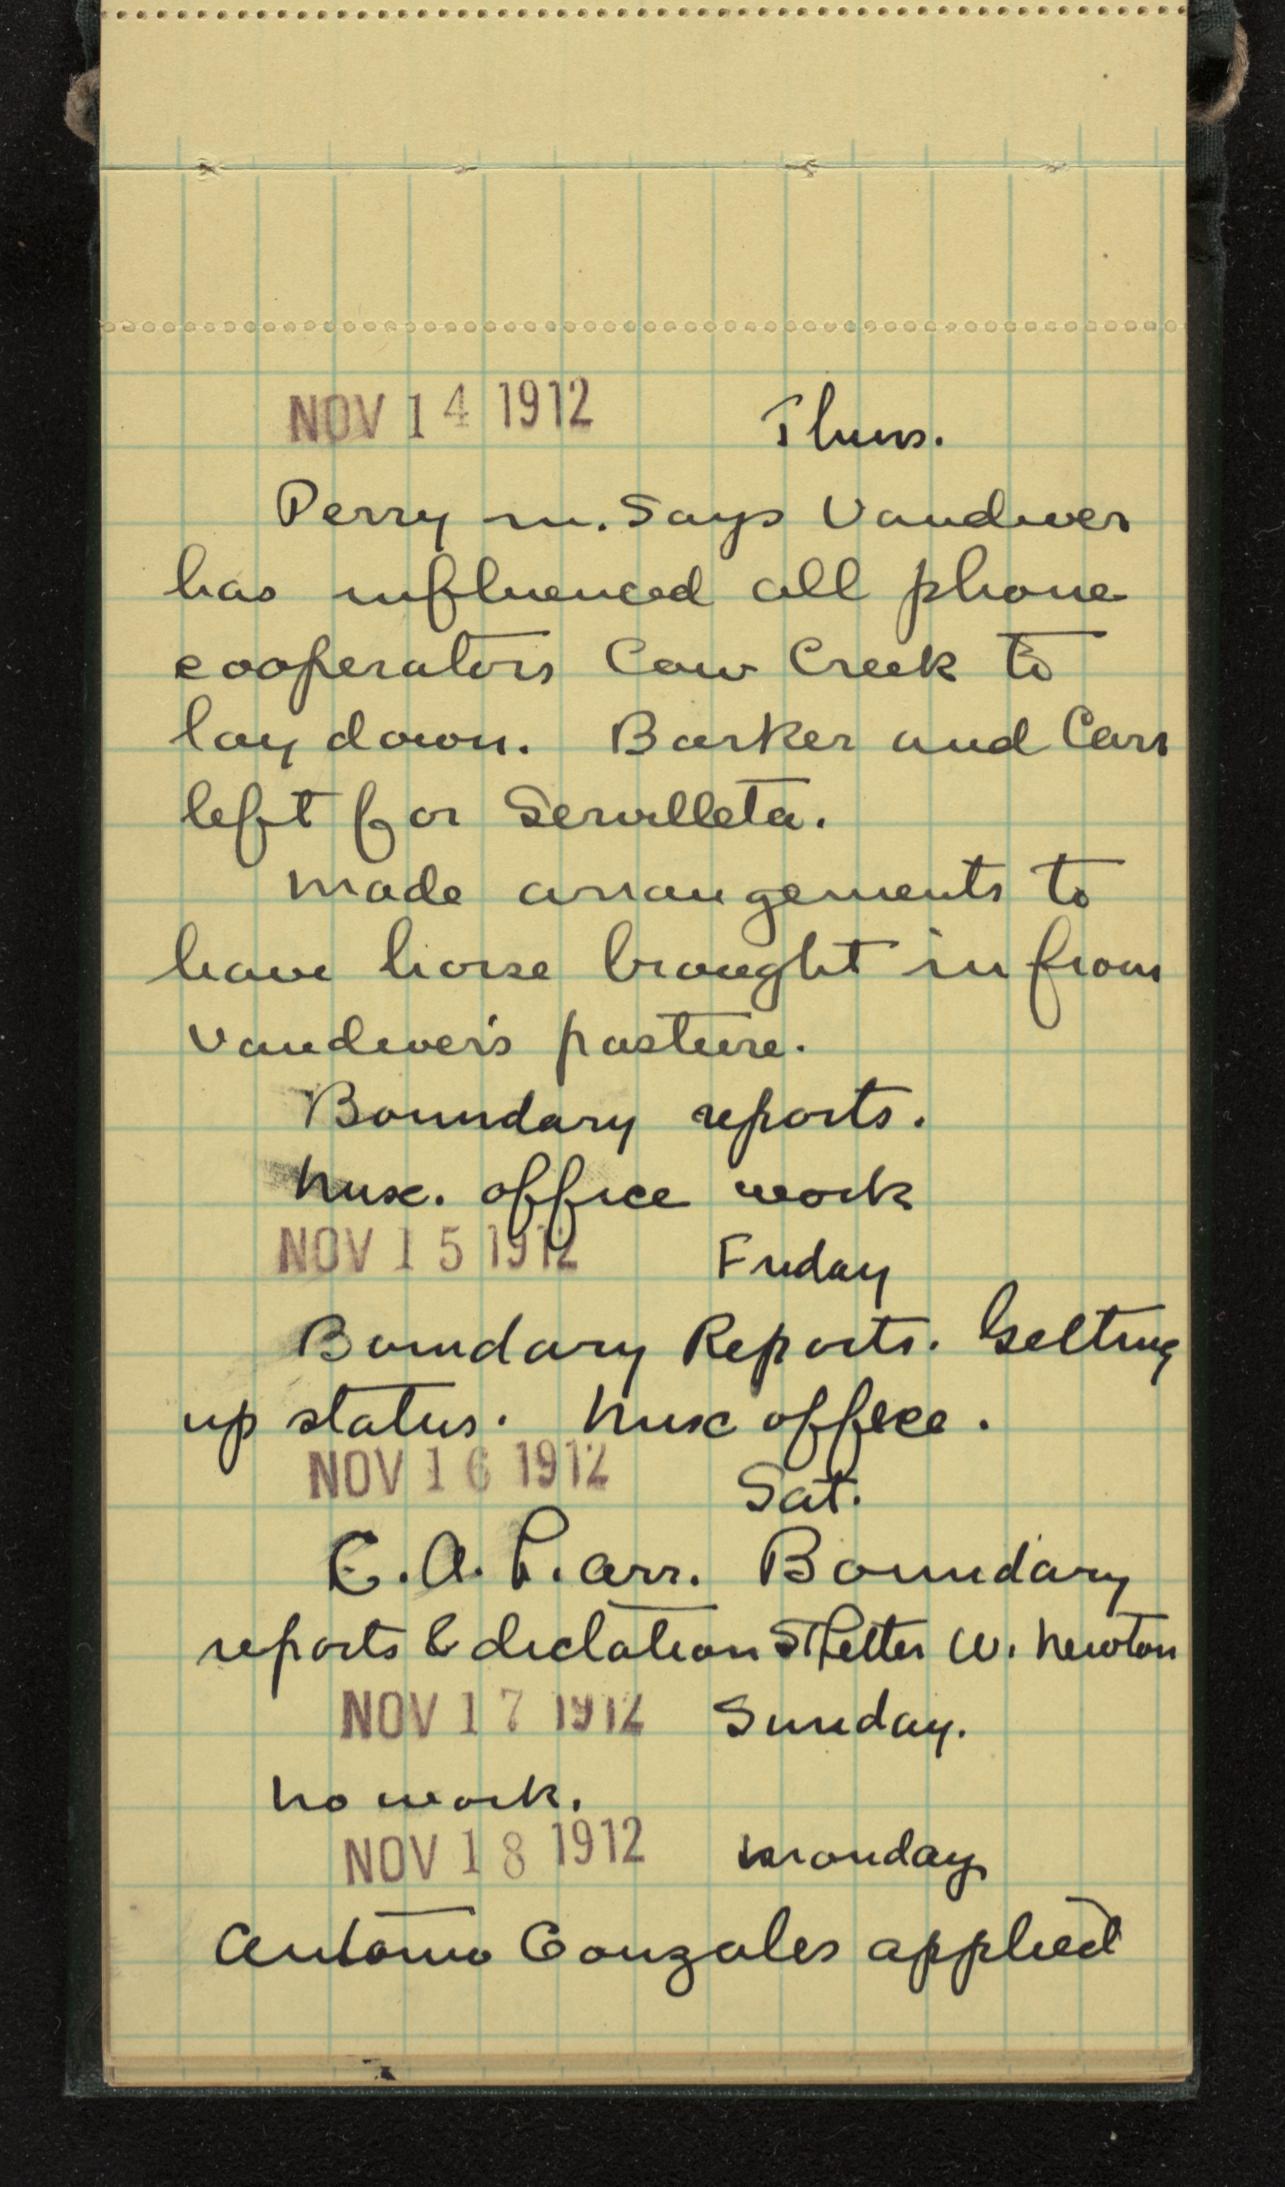 NOV 14 1912 Thurs.
Perry M. says Vandiver
has influenced all phone
cooperators Cow Creek to
lay down. Barker and Carr
left for Servilleta.
Made arrangements to
have horse brought in from
Vandiver's pasture.
Boundary reports.
Misc. office work
NOV 15 1912 Friday
Boundary Reports. Getting
up status. Misc office.
NOV 16 1912 Sat.
Boundary
reports & dictation letter W. Newton
NOV 17 1912 Sunday.
No work.
NOV 18 1912 Monday
Antonio Gonzales applied